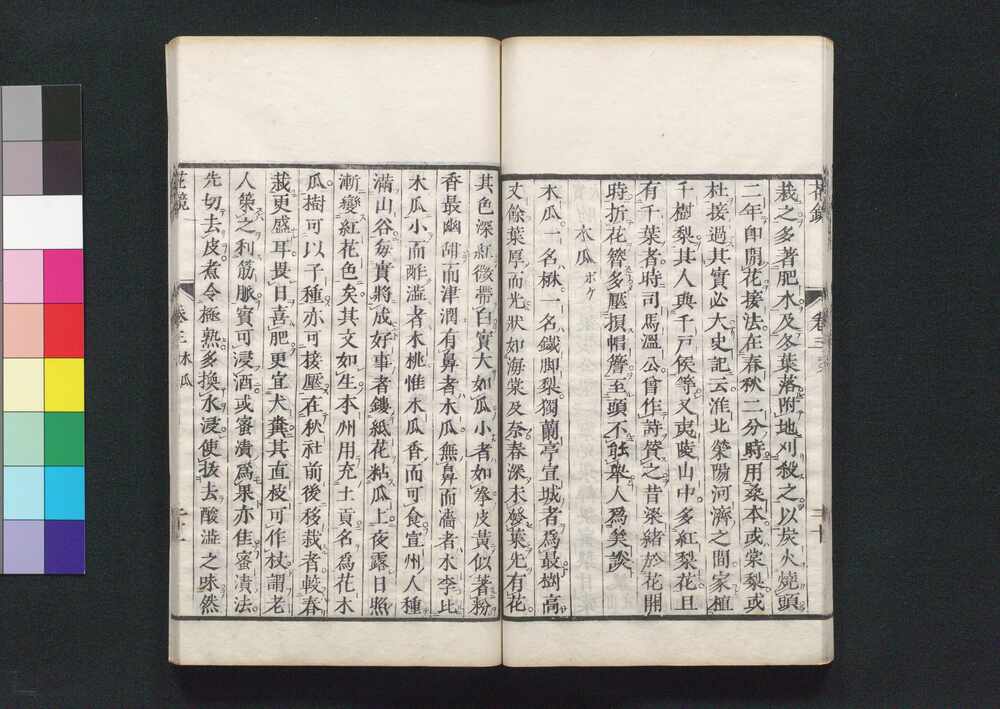 花鏡
卷三
三十
栽之多著肥水及冬葉落附地刈殺之以炭火燒頭
二年即開花接法在春秋二分時用桑本或棠梨或
杜接過其實必大史記云淮北滎陽河濟之間家植
千樹梨其人與千戸侯等又夷陵山中多紅梨花且
有千葉者時司馬溫公曾作詩贊之昔梁緒於花開
時折花簪多壓損帽簷至頭不能舉人爲美談
木瓜 ボケ
木瓜一名楙一名鐵脚梨獨蘭亭宣城者爲最樹高
丈餘葉厚而光狀如海棠及柰春深未發葉先有花
其色深紅微帶白實大如瓜小者如拳皮黃似著粉
香最幽甜而津潤有鼻者木瓜無鼻而濇者木李比
木瓜小而酢澁者木桃惟木瓜香而可食宣州人種
滿山谷每實將成好事者鏤紙花粘瓜上夜露日烝
漸變紅花色矣其文如生本州用充土貢名爲花木
瓜樹可以子種亦可接壓在秋社前後移栽者較春
栽更盛耳畏日喜肥更宜犬糞其直枝可作杖謂老
人策之利筋脈實可浸酒或蜜漬爲果亦佳蜜漬法
先切去皮煮令極熟多換水浸使拔去酸澁之味然
花鏡
卷三 木瓜